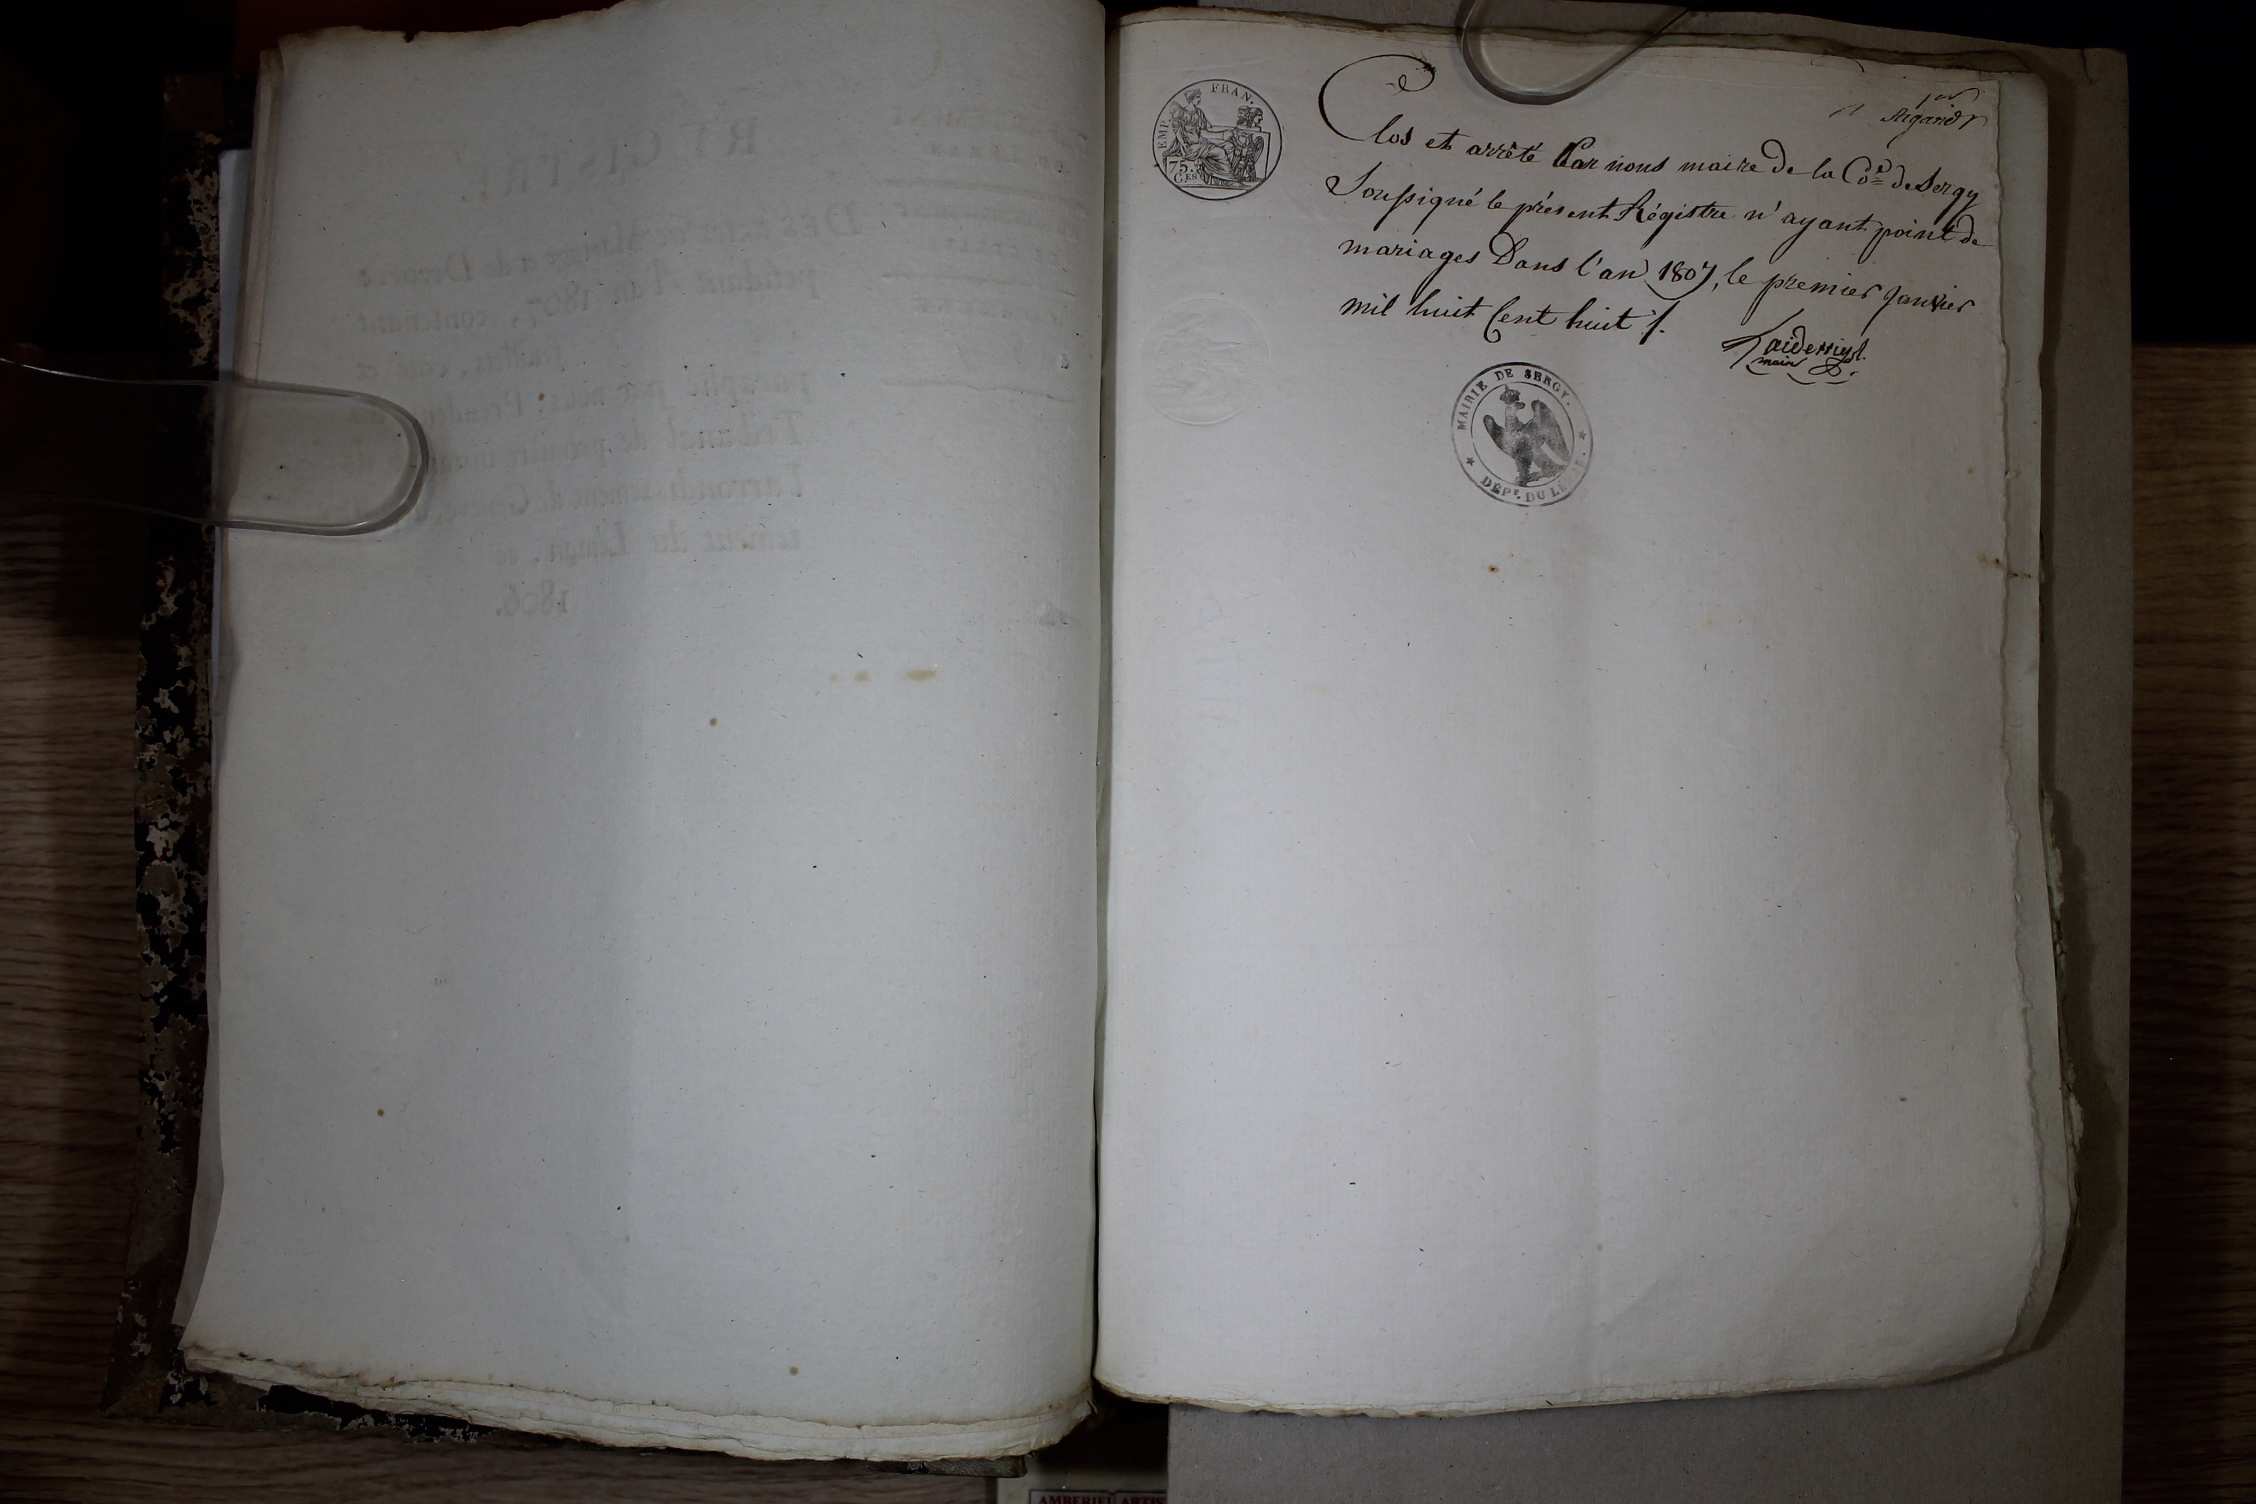 EMP. FRAN.
75.
CES
Clos et arrêté Par nous maire de la Coe de Sergy
Soussigné le présent Régistre n'ayant point de
mariages Dans l'an 1807, le premier Janvier
mil huit Cent huit /.
maire
MAIRIE DE SERGY.
DÉPT. DU LÉMAN.